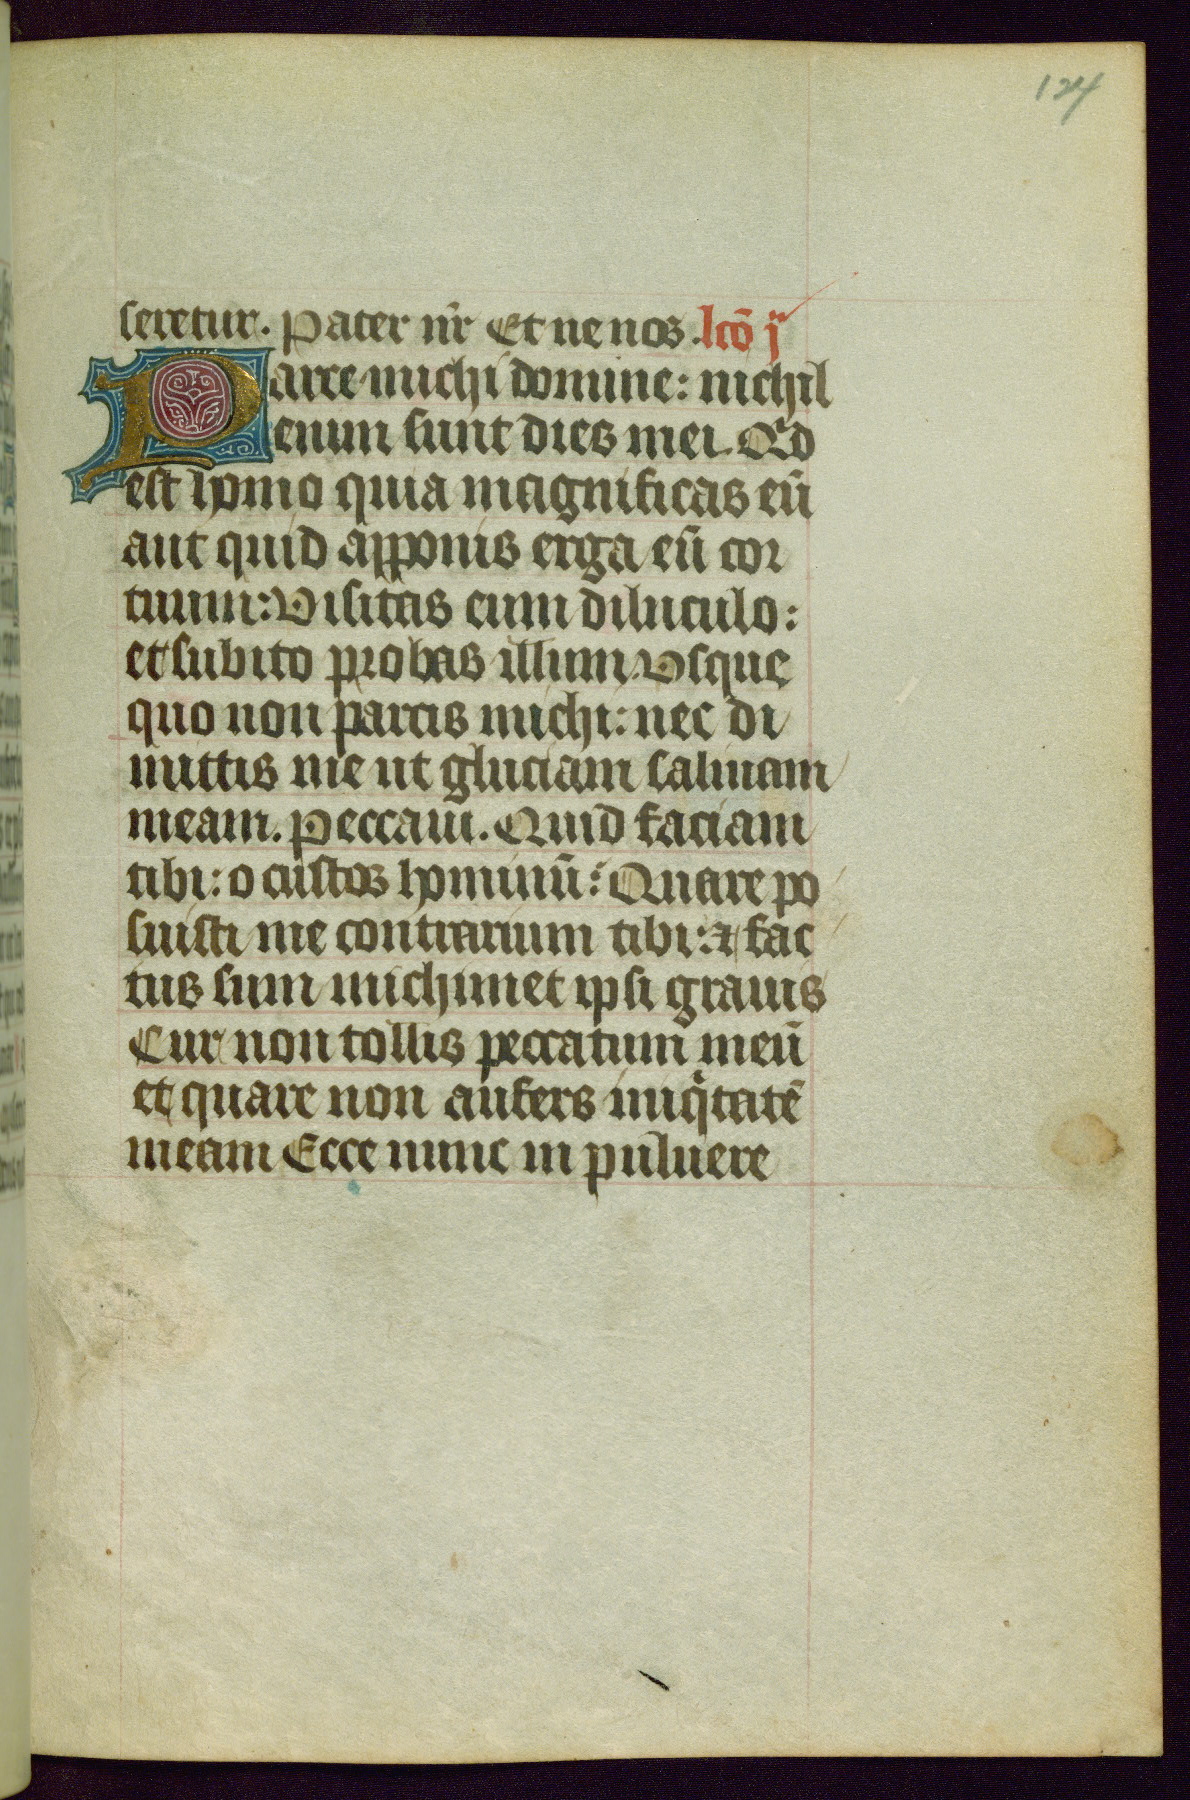 124
seretur. Pater nr̄ Et ne nos. lcō j
Parce michi domine: nichil
enim sunt dies mei. Qd
est homo quia magnificas eū
aut quid apponis erga eū cor
tuum: Visitas eum diluculo:
et subito probas illum. Vsque
quo non parcis michi: nec di
mittis me ut gluciam saliuam
meam. Peccaui. Quid faciam
tibi: o custos hominū: Quare po
suisti me contrarium tibi: ⁊ fac
tus sum michimet ipsi grauis
Cur non tollis peccatum meū
et quare non aufers iniqͥtatē
meam Ecce nunc in puluere